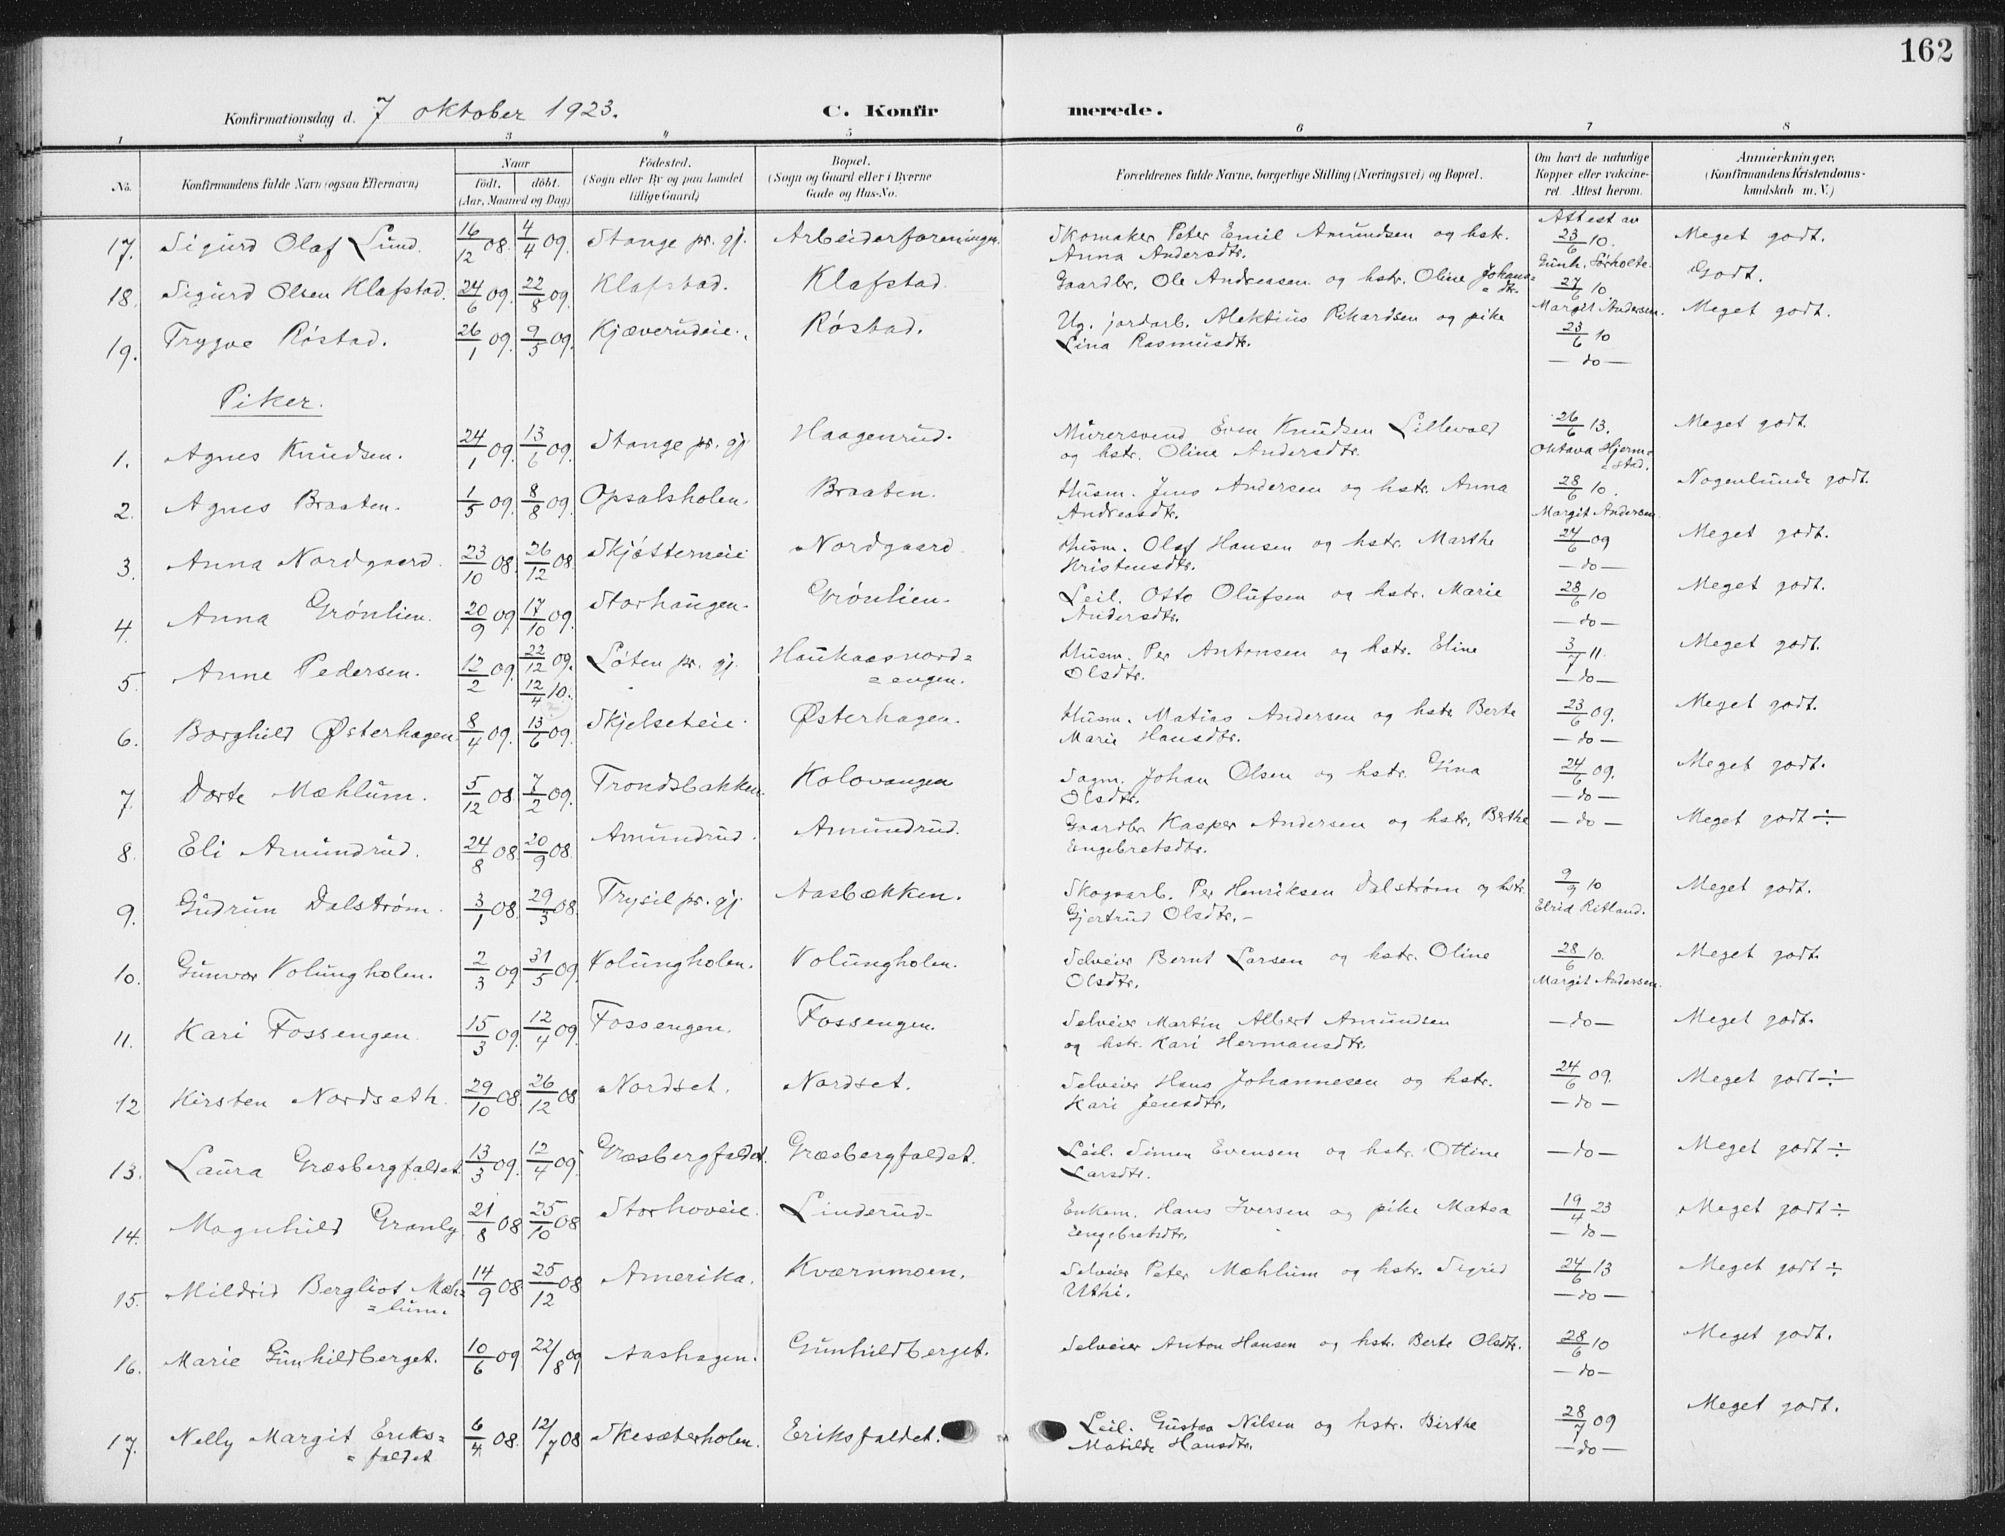 162
Konfirmationsdag d. 7 oktober 1923. C. Konfirmerede.
1 2 3 4 5 6 7 8
No. Konfirmandens fulde Navn (ogsaa Efternavn) Naar födt, döbt. (Aar, Maaned og Dag) Födested. (Sogn eller By og paa Landet tillige Gaard) Bopæl. (Sogn og Gaard eller i Byerne Gade og Hus-No. Forældrenes fulde Navne, borgerlige Stilling (Næringsvei) og Bopæl. Om havt de naturlige Kopper eller vakcineret. Attest herom. Anmærkninger. (Konfirmandens Kristendomskundskab m. V.)
17. Sigurd Olaf Lund. 16/12 08. 4/4 09. Stange pr. gj. Arbeiderforeningen. Skomaker Peter Emil Amundsen og hst. Anna Andersdtr. Attest av 23/6 10. Gunh. Sørholte. Meget godt.
18. Sigurd Olsen Klafstad. 24/6 09. 22/8 09. Klafstad. Klafstad. Gaardbr. Ole Andreasen og hstr. Oline Johans=dtr. 27/6 10 Margit Andersen. Godt.
19. Trygve Røstad. 26/1 09. 9/5 09. Kjæverudeie. Røstad. Ug. jordarb. Alektius Rikardsen og pike Lina Rasmusdtr. 23/6 10 —do— Meget godt.
Piker.
1. Agnes Knudsen. 24/1 09. 13/6 09. Stange pr. gj. Haagenrud. Murersvend Even Knudsen Lillevold og hstr. Oline Andersdtr. 26/6 13. Oktava Hjerm=stad. Meget godt.
2. Agnes Braaten. 1/5 09. 8/8 09. Opsalsholen. Braaten. Husm. Jens Andersen og hstr. Anna Andreasdtr. 28/6 10. Margit Andersen. Nogenlunde godt.
3. Anna Nordgaard. 23/10 08. 26/12 08. Skjøtterneie Nordgaard. Husm. Olaf Hansen og hstr. Marthe Kristensdtr. 24/6 09 —do— Meget godt.
4. Anna Grønlien. 20/9 09. 17/10 09. Storhaugen. Grønlien. Leil. Otto Olufsen og hstr. Marie Andersdtr. 28/6 10 —do— Meget godt.
5. Anne Pedersen. 12/2 09. 22/12 09. 12/4 10. Løten pr. gj. Haukaasnord=engen. Husm. Per Antonsen og hstr. Eline Olsdtr. 3/7 11. —do— Meget godt.
6. Borghild Østerhagen. 8/4 09. 13/6 09. Skjelseteie. Østerhagen. Husm. Matias Andersen og hstr. Berte Marie Hansdtr. 23/6 09. —do— Meget godt.
7. Dorte Mæhlum. 5/12 08. 7/2 09. Trondsbakken. Kolovangen Sagm. Johan Olsen og hstr. Gina Olsdtr. 24/6 09. —do— Meget godt.
8. Eli Amundrud. 24/8 08. 20/9 08. Amundrud. Amundrud. Gaardbr Kasper Andersen og hstr. Berthe Engebretsdtr. —do— Meget godt ÷
9. Gudrun Dalstrøm. 3/1 08. 29/3 08. Trysil pr. gj. Aasbækken. Skogsarb. Per Henriksen Dalstrøm og hstr. Gjertrud Olsdtr.— 9/9 10 Elrid Ritland. Meget godt.
10. Gunvor Kolungholen. 2/3 09. 31/5 09. Kolungholen. Kolungholen. Selveier Bernt Larsen og hstr. Oline Olsdtr. 28/6 10. Margit Andersen. Meget godt.
11. Kari Fossengen. 15/3 09. 12/4 09. Fossengen. Fossengen. Selveier Martin Albert Amundsen og hstr. Kari Hermansdtr. —do— Meget godt.
12 Kirsten Nordseth. 29/10 08. 26/12 08 Nordset. Nordset. Selveier Hans Johannesen og hstr. Kari Jensdtr. 24/6 09. —do— Meget godt ÷
13. Laura Græsbergfaldet. 13/3 09. 12/4 09. Græsbergfaldet. Græsbergfaldet. Leil. Simen Evensen og hstr. Ottine Larsdtr. —do— Meget godt ÷
14. Magnhild Granly 21/8 08 25/10 08 Storhoveie. Linderud. Enkem. Hans Iversen og pike Matea Engebretsdtr. 19/4 23 —do— Meget godt ÷
15. Mildrid Bergliot Mæh=lum. 14/9 08. 25/12 08 Amerika. Kværnmoen. Selveier Peter Mæhlum og hstr. Sigrid Uthi. 24/6 13 —do— Meget godt ÷
16. Marie Gunhildberget. 10/6 09. 22/8 09 Aashagen. Gunhildberget. Selveier Anton Hansen og hstr. Berte Olsdtr. 28/6 10 —do— Meget godt.
17. Nelly Margit Eriks=faldet 6/4 08. 12/7 08 Skesæterholen. Eriksfaldet. Leil. Gustav Nilsen og hstr. Birthe Matilde Hansdtr. 28/7 09 —do— Meget godt.